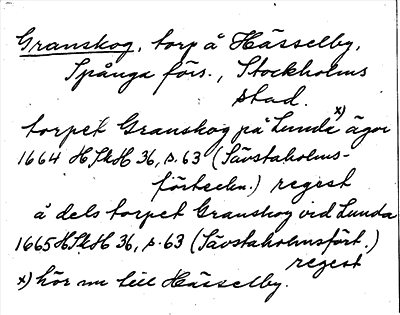 Granskog, torp å Hässelby,
Spånga förs., Stockholms
stad.
torpet Granskog på Lunda x) ägor
1664 HSkH 36, s. 63 (Sävstaholms-
förteckn.) regest
å dels torpet Granskog vid Lunda
1665 HSkH 36, s. 63 (Sävstaholmsfört.)
regest
x) hör nu till Hässelby.